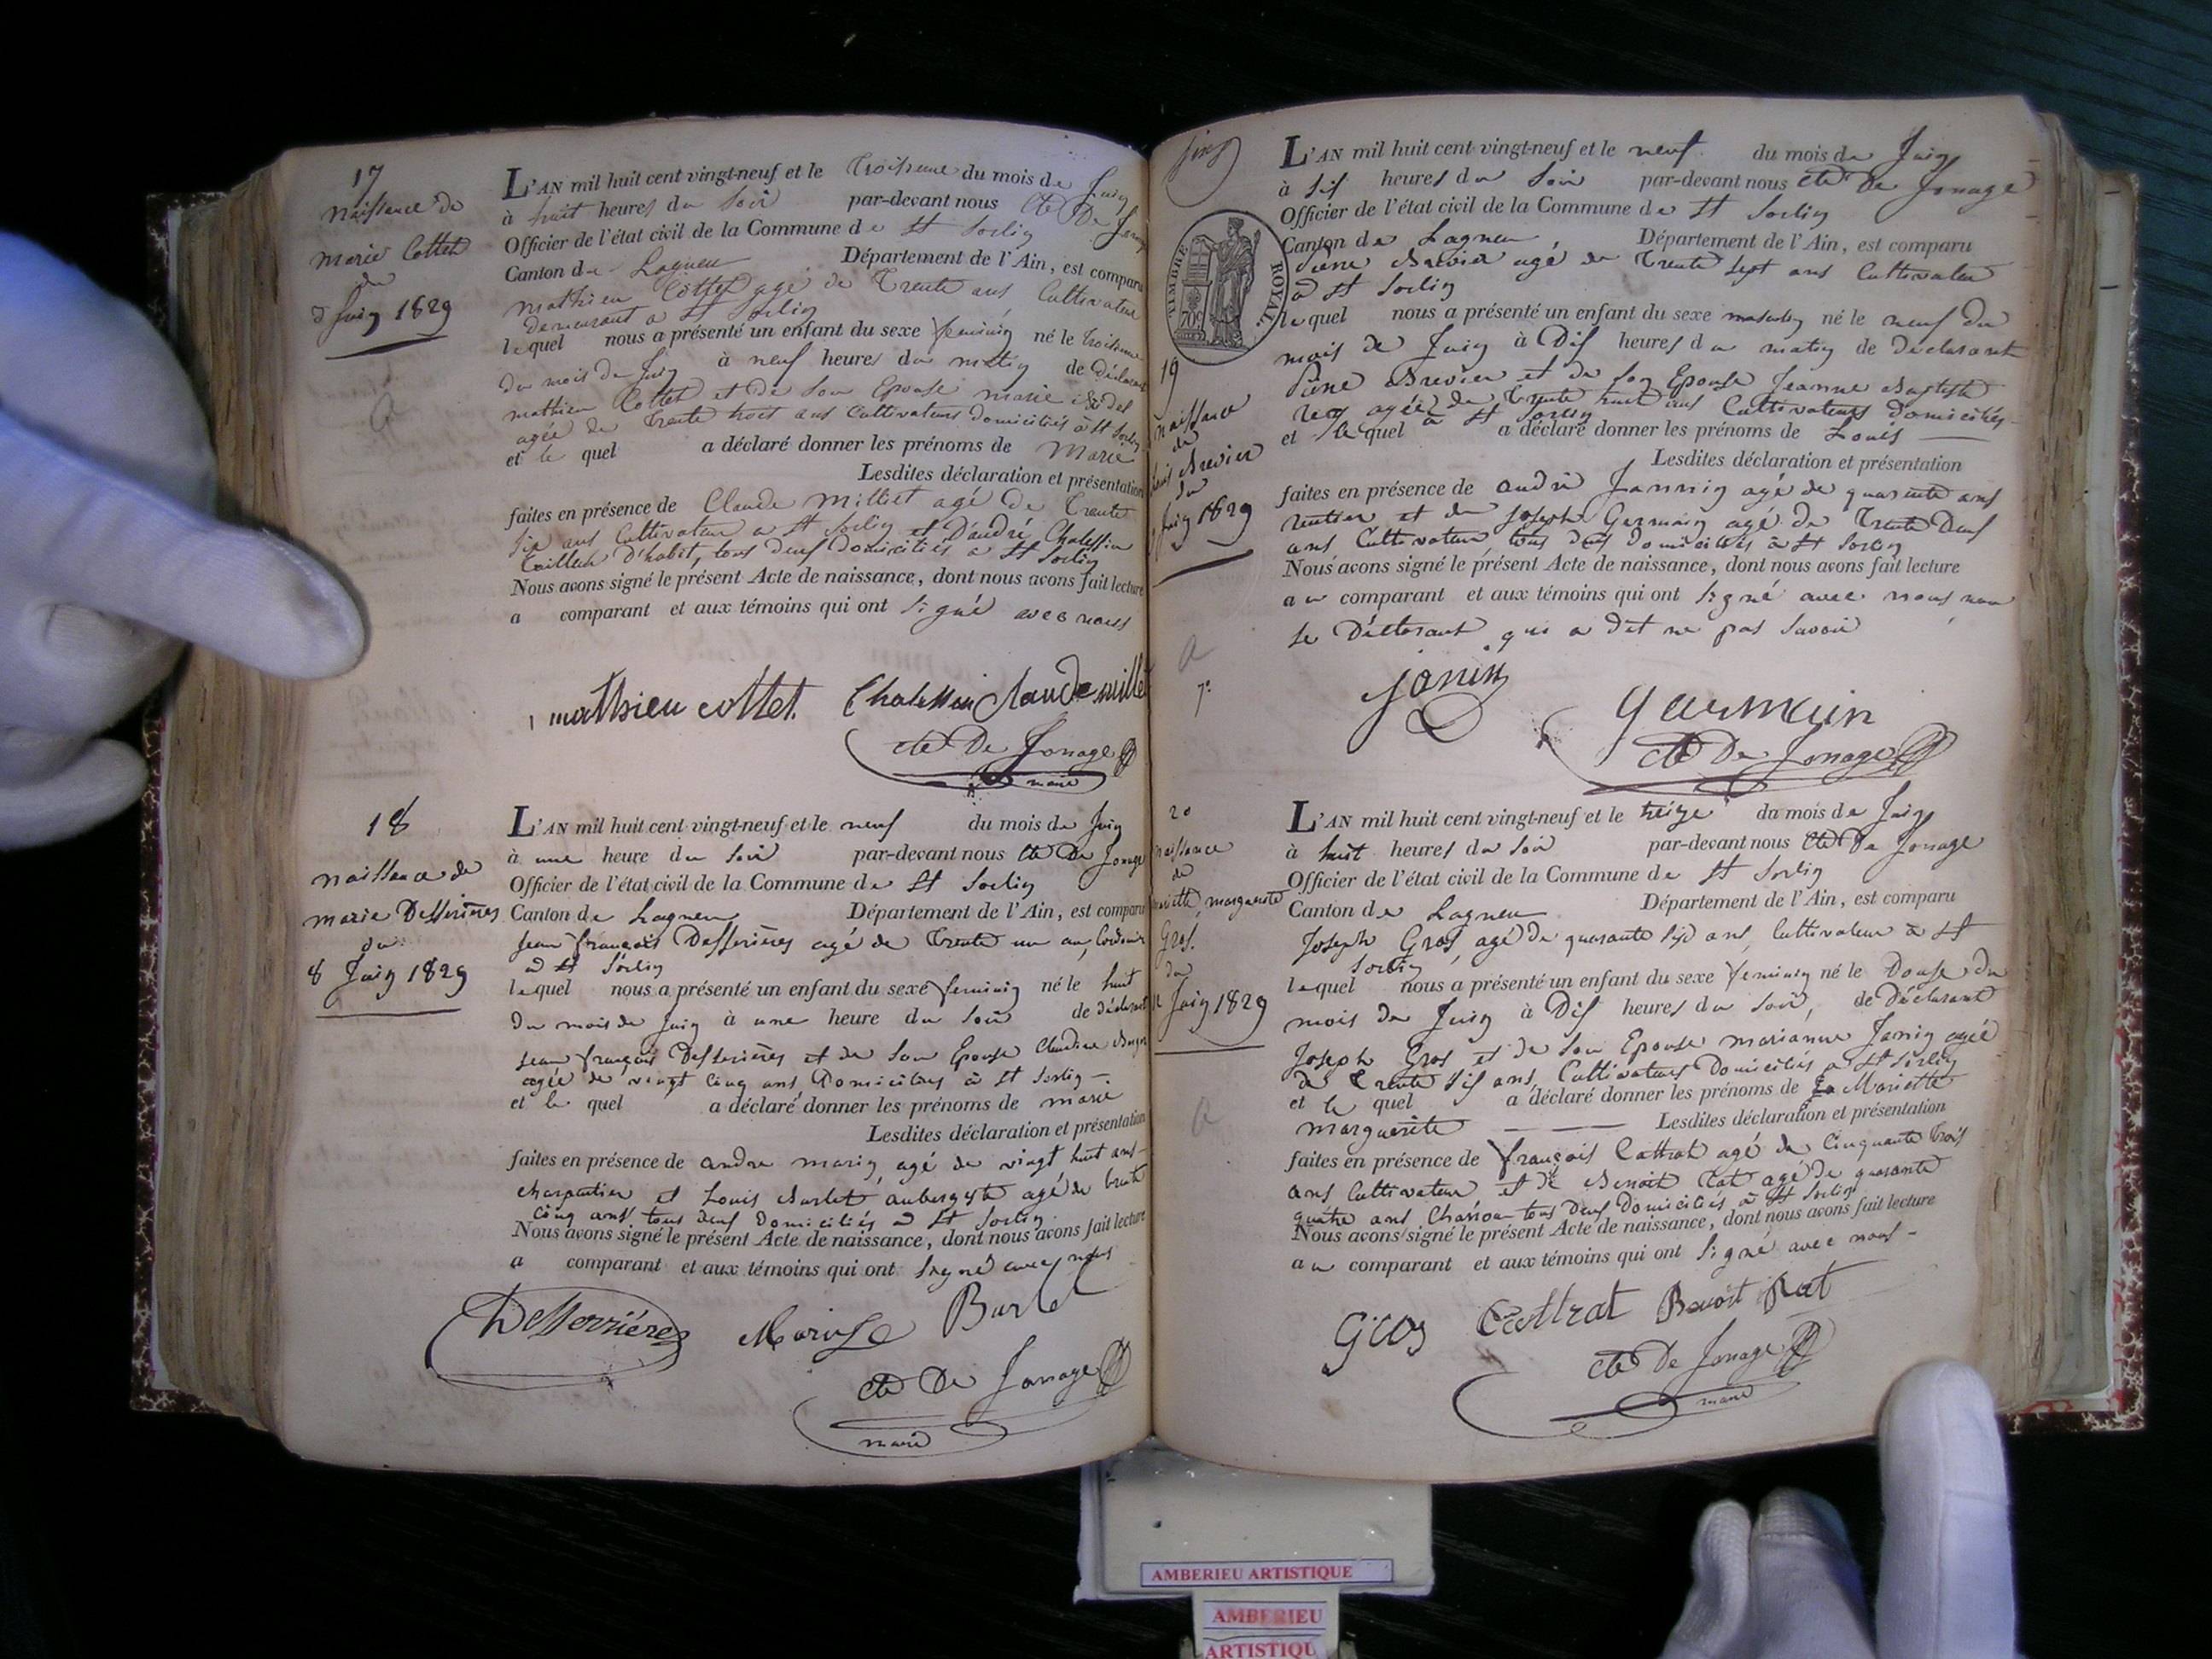 17
naissance de
marie Cottet
du
3 Juin 1829
L'AN mil huit cent vingt-neuf et le troisieme du mois de Juin
à huit heures du soir par-devant nous cte De Jonage
Officier de l'état civil de la Commune de St Sorlin
Canton de Lagneu Département de l'Ain, est comparu
mathieu Cottet agé de trente ans Cultivateur
demeurant a St Sorlin
lequel nous a présenté un enfant du sexe feminin né le troisieme
du mois de Juin à neuf heures du matin de déclarant
mathieu Cottet et de son Epouse marie
agée de trente huit ans Cultivateurs domiciliés à St Sorlin
et le quel a déclaré donner les prénoms de Marie
Lesdites déclaration et présentation
faites en présence de Claude Milliet agé de trente
six ans Cultivateur a St Sorlin et D'andré Chalessin
tailleur D'habit, tous deux Domiciliés a St Sorlin
Nous avons signé le présent Acte de naissance, dont nous avons fait lecture
a comparant et aux témoins qui ont signé avec nous
mathieu cottet. Chalessin Claude millet
cte De Jonage
maire
18
naissance de
marie Desserières
du
8 Juin 1829
L'AN mil huit cent vingt-neuf et le neuf du mois de Juin
à une heure du soir par-devant nous cte De Jonage
Officier de l'état civil de la Commune de St Sorlin
Canton de Lagneu Département de l'Ain, est comparu
Jean françois Desserières agé de trente un an, Cordonier
a St Sorlin
lequel nous a présenté un enfant du sexe feminin né le huit
du mois de Juin à une heure du soir de déclarant
Jean françois Desserières et de son Epouse Claudine
agée de vingt cinq ans, Domiciliés à St Sorlin -
et le quel a déclaré donner les prénoms de marie
Lesdites déclaration et présentation
faites en présence de andre marin, agé de vingt huit ans
charpentier et Louis Burlet aubergiste agé de trente
cinq ans tous deux Domiciliés a St Sorlin
Nous avons signé le présent Acte de naissance, dont nous avons fait lecture
a comparant et aux témoins qui ont signé avec nous
Desserriéres Burlet
cte De Jonage
maire
TIMBRE ROYAL
70c
19
naissance
de
Louis Brevier
du
Juin 1829
L'AN mil huit cent vingt-neuf et le neuf du mois de Juin
à six heures du soir par-devant nous cte De Jonage
Officier de l'état civil de la Commune de St Sorlin
Canton de Lagneu Département de l'Ain, est comparu
Pierre Brevier agé de trente sept ans Cultivateur
a St Sorlin
lequel nous a présenté un enfant du sexe masculin né le neuf du
mois de Juin à Dix heures du matin de déclarant
Pierre Brevier et de son Epouse Jeanne Baptiste
agée de trente huit ans Cultivateurs domiciliés
à St Sorlin
et le quel a déclaré donner les prénoms de Louis
Lesdites déclaration et présentation
faites en présence de andré Jannin agé de quarente ans
rentier et de Joseph Germain agé de trente Deux
ans Cultivateur tous deux domiciliés à St Sorlin
Nous avons signé le présent Acte de naissance, dont nous avons fait lecture
au comparant et aux témoins qui ont signé avec nous non
le Déclarant qui a dit ne pas savoir
janin
germain
cte De Jonage
20
naissance
de
mariette marguerite
Gros.
du
12 Juin 1829
L'AN mil huit cent vingt-neuf et le treize du mois de Juin
à huit heures du soir par-devant nous cte De Jonage
Officier de l'état civil de la Commune de St Sorlin
Canton de Lagneu Département de l'Ain, est comparu
Joseph Gros, agé de quarante six ans, Cultivateur à St
Sorlin
lequel nous a présenté un enfant du sexe feminin né le Douse du
mois de Juin à Dix heures du soir, de déclarant
Joseph Gros et de son Epouse marianne Janin agée
de trente six ans, Cultivateurs Domiciliés a St Sorlin
et le quel a déclaré donner les prénoms de Mariette
marguerite Lesdites déclaration et présentation
faites en présence de françois Cattrat agé de Cinquante trois
ans Cultivateur et de Benoit Rat agé de quarante
quatre ans Charron tous Deux Domiciliés à St Sorlin
Nous avons signé le présent Acte de naissance, dont nous avons fait lecture
au comparant et aux témoins qui ont signé avec nous -
Gros Cattrat Benoit Rat
cte De Jonage
maire
AMBERIEU ARTISTIQUE
AMBERIEU
ARTISTIQU